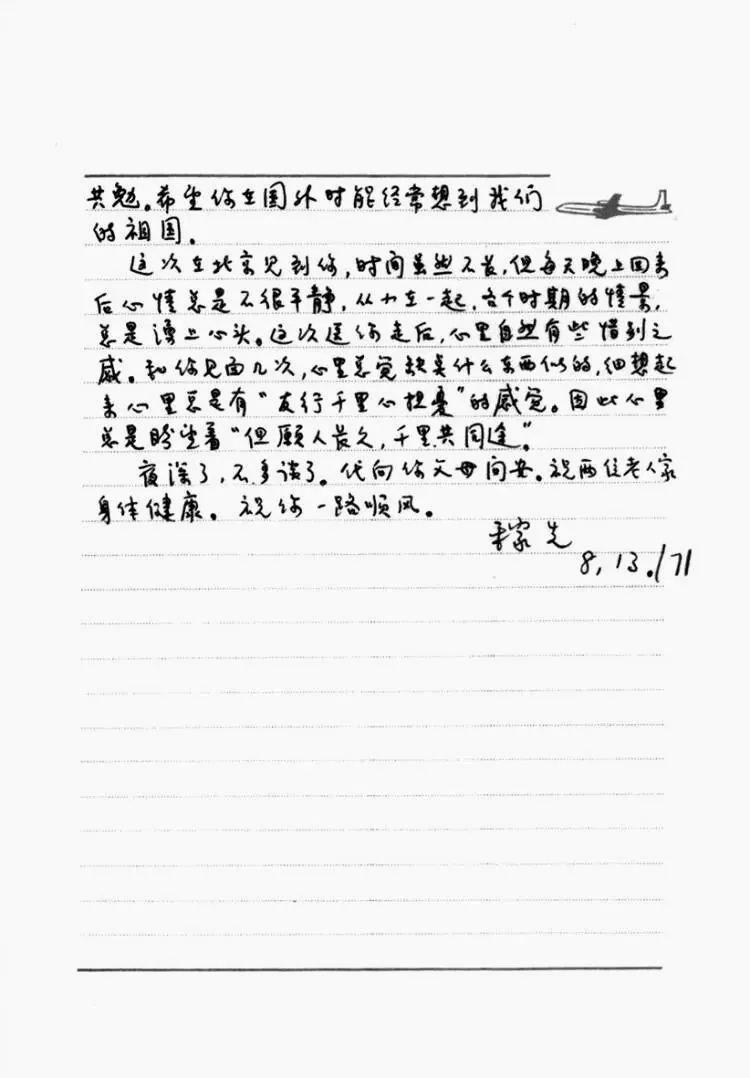 共勉。希望你在国外时能经常想到我们
的祖国。
这次在北京见到你,时间虽然不长,但每天晚上回来
后心情总是不很平静,从小在一起,各个时期的情景,
总是涌上心头。这次送你走后,心里自然有些惜别之
感。和你见面几次,心里总觉缺点什么东西似的,细想起
来心里总是有“友行千里心担忧”的感觉。因此心里
总是盼望着“但愿人长久,千里共同途”。
夜深了,不多谈了。代向你父母问安。祝两位老人家
身体健康。祝你一路顺风。
稼先
8,13./71